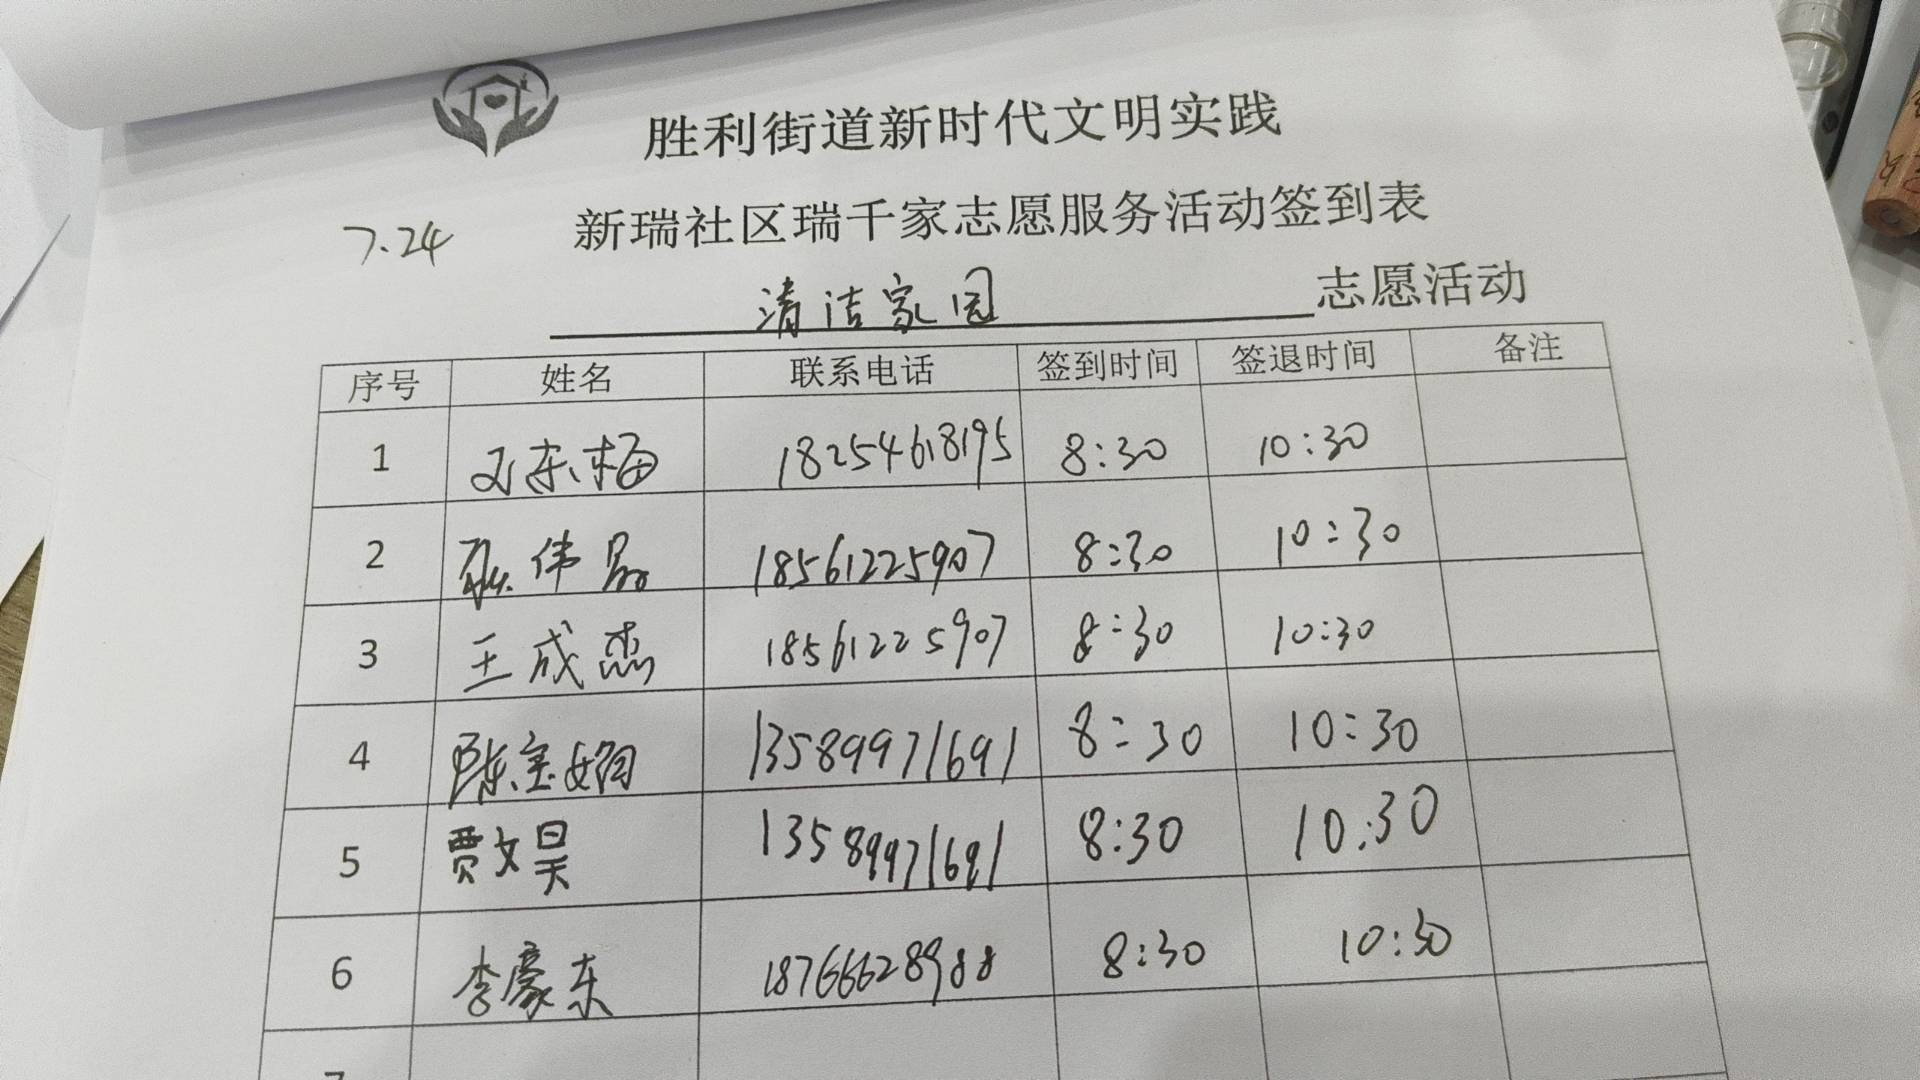 胜利街道新时代文明实践
7.24 新瑞社区瑞千家志愿服务活动签到表
清洁家园 志愿活动
序号 姓名 联系电话 签到时间 签退时间 备注
1 东梅 18254618195 8:30 10:30
2 伟 18561225907 8:30 10:30
3 王成杰 18561225907 8:30 10:30
4 陈宝娟 13589971691 8:30 10:30
5 贾文昊 13589971691 8:30 10:30
6 李豪东 18766628988 8:30 10:30